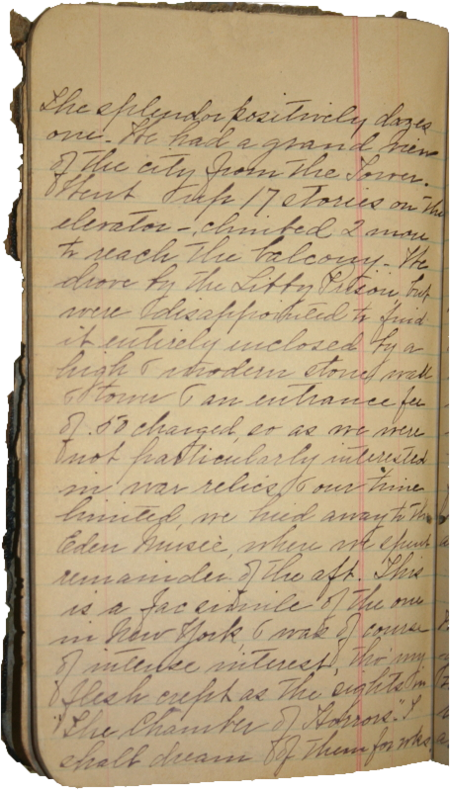 The splendor positively dazes
one. We had a grand view
of the city from the Tower.
Went up 17 stories on the
elevator -, climbed 2 more
to reach the balcony. We
drove by the Libby Prison but
were disappointed to find
it entirely enclosed by a
high & modern stone wall
& tower & an entrance fee
of .50 charged, so as we were
not particularly interested
in war relics, & our time
limited, we hied away to the
Eden Museé, where we spent
remainder of the aft. This
is a facsimile of the one
in New York, & was of course
of intense interest, tho' my
flesh crept as the sights in
"The Chamber of Horrors". I
shall dream of them for wks